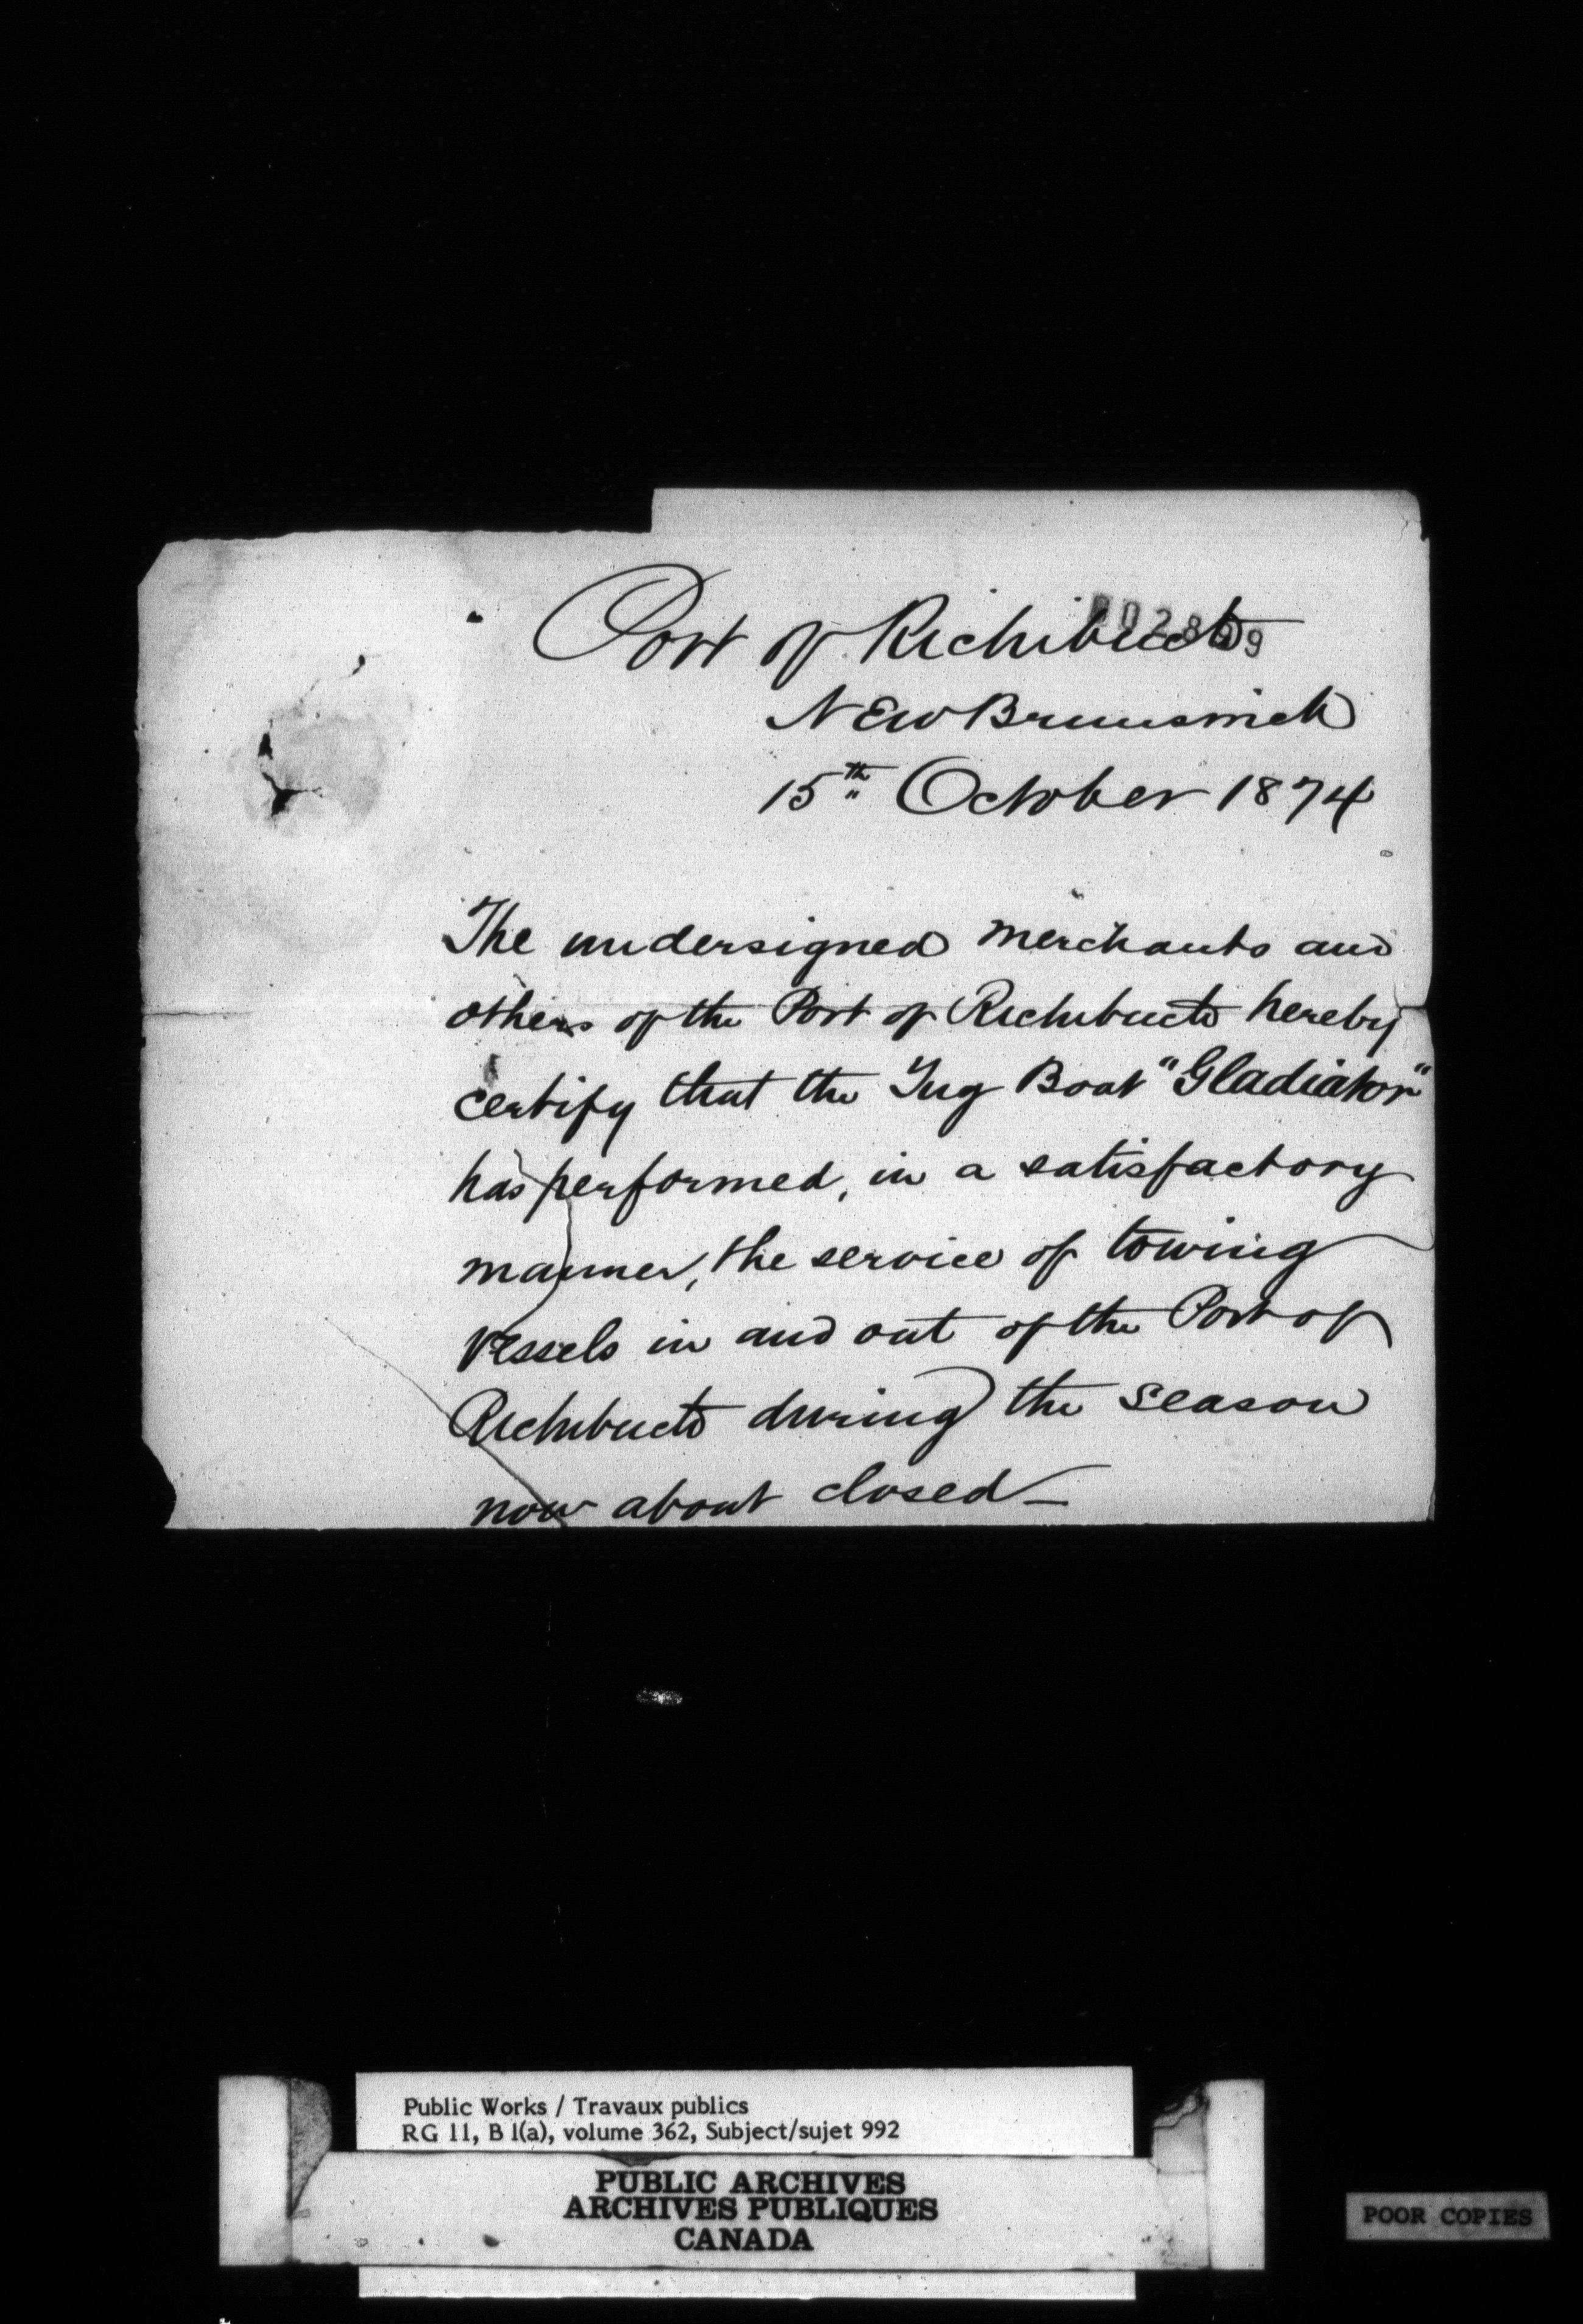 Port of Richibucto
New Brunswick
15th October 1874
The undersigned merchants and
others of the Port of Richibucto hereby
certify that the Tug Boat "Gladiator"
has performed, in a satisfactory
manner, the service of towing
vessels in and out of the Port of
Richibucto during the season
now about closed —
Public Works / Travaux publics
RG 11, B 1(a), volume 362, Subject/sujet 992
PUBLIC ARCHIVES
ARCHIVES PUBLIQUES
CANADA
POOR COPIES